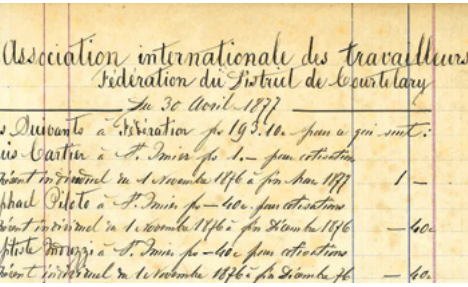 Association internationale des travailleurs
Fédération du District de Courtelary
Du 30 Avril 1877
Suivants à Fédération fs 193.10c pour ce qui suit :
Cartier à St. Imier fs 1.— pour cotisation
individuel du 1 Novembre 1876 à fin Mars 1877 1 —
Piloto à St. Imier fs —40c pour cotisations
individuel du 1 Novembre 1876 à fin Décembre 1876 — 40c
à St. Imier fs —40c pour cotisations
individuel du 1 Novembre 1876 à fin Décembre 76 — 40c